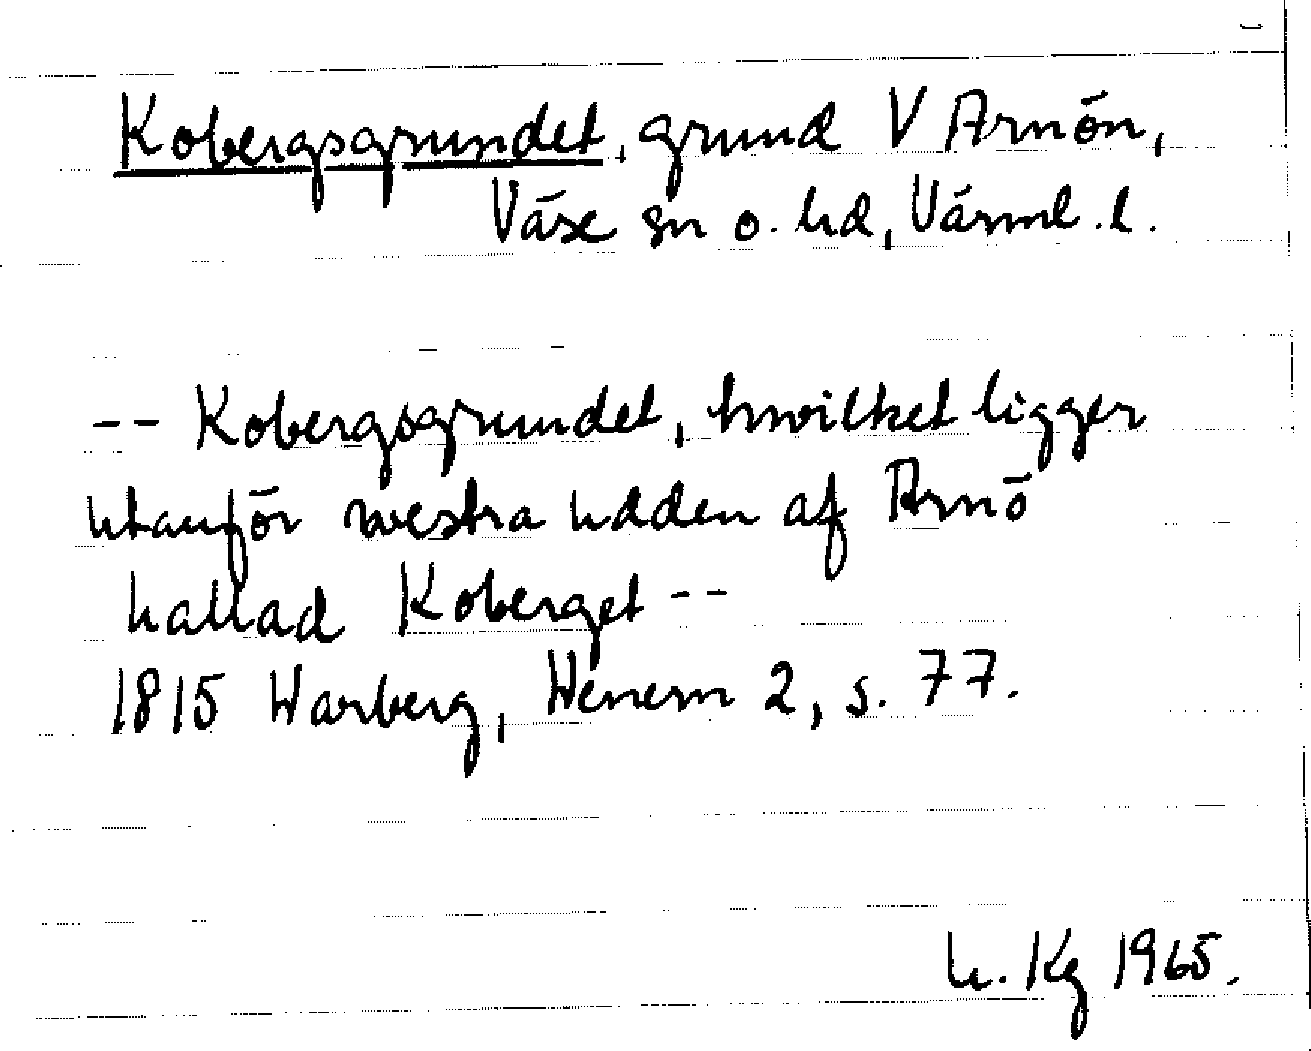 Kobergsgrundet, grund V Arnön,
Väse sn o. hd, Värml. l.
-- Kobergsgrundet, hwilket ligger
utanför westra udden af Arnö
kallad Koberget --
1815 Warberg, Wenern 2, s. 77.
Kg 1965.